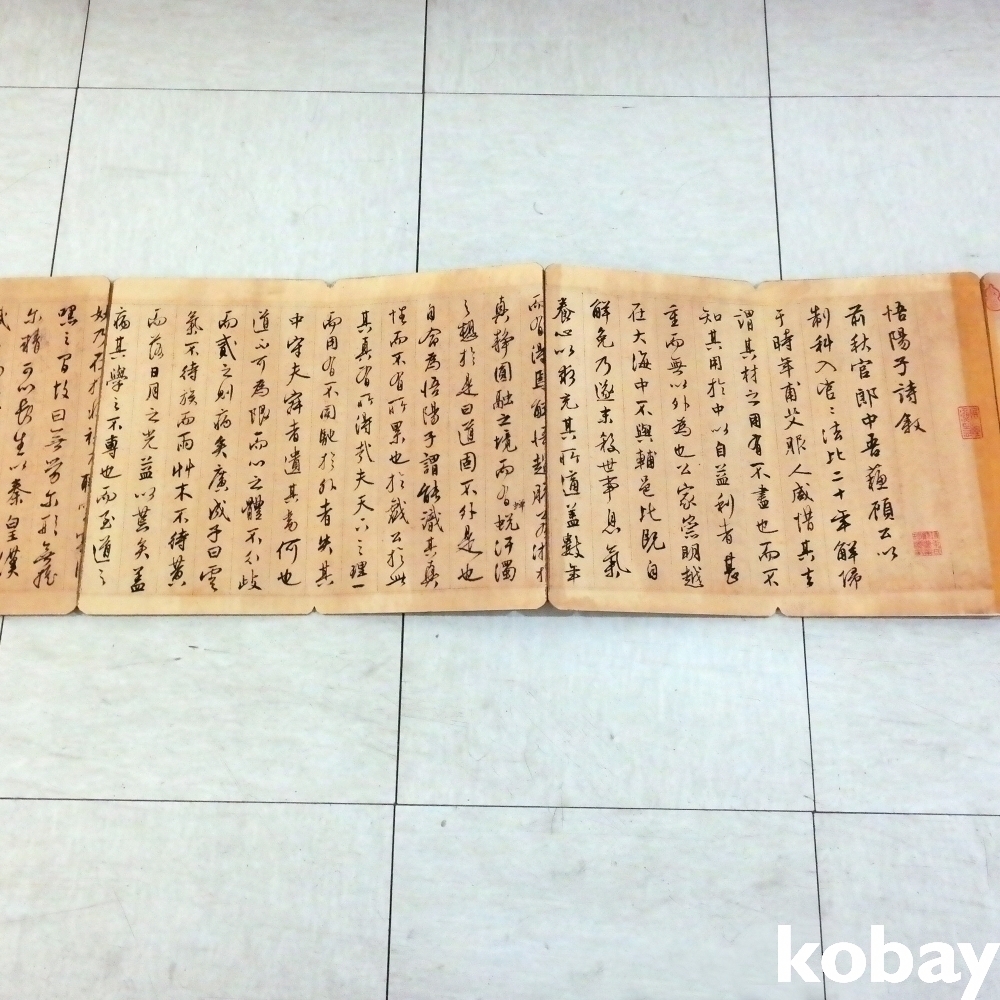 悟陽子詩敘
前秋官郎中吾蘇顧公以
制科入官官法比二十年解歸
于時年甫艾服人咸惜其去
謂其材之用有不盡也而不
知其用於中以自益利者甚
重而無以外為也公家崇明越
在大海中不與輔邑比既自
解免乃遂末殺世事息氣
養心以靜充其所道蓋數年
而有得焉
真靜圓融之境而有蛻汙濁
之趣於是曰道固不外是也
自命為悟陽子謂能識其真
性而不有所累也於戲公於此
其真有所得哉夫天下之理一
而用有不同馳於外者失其
中守夫寂者遺其書何也
道不可為限而心之體不分歧
而貳之則病矣廣成子曰雲
氣不待族而雨艸木不待黃
而落日月之光益以荒矣蓋
病其學之不專也而至道之
妙乃在於
嘿之間故曰無勞爾形無搖
爾精可以長生以秦皇漢
kobay